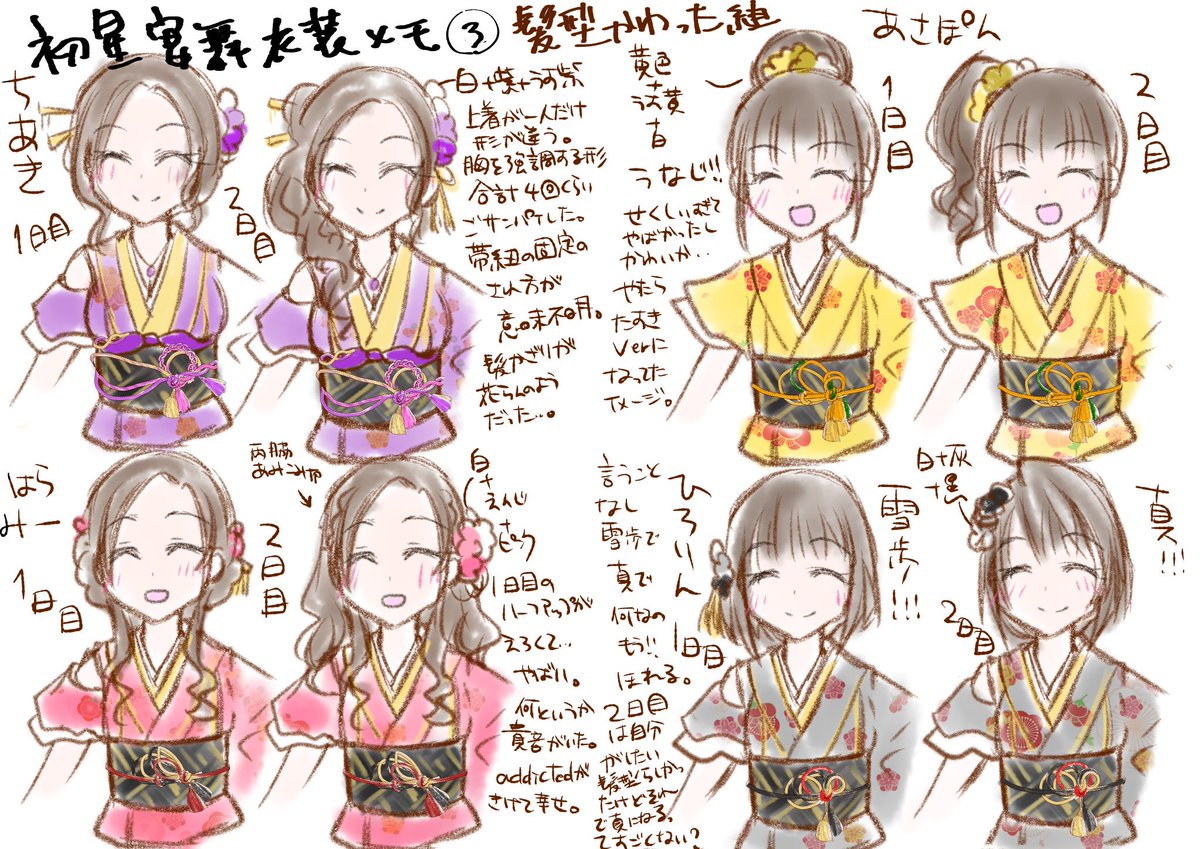 初星宴舞衣装メモ③
髪型かわった組
ちあき
1日目
2日目
白+紫+うす紫
上着が一人だけ
形が違う。
胸を強調する形
合計4回くらい
ごサンパケした。
帯紐の固定の
され方が
意味不明。
髪かざりが
花らんのよう
だった…。
あさぽん
1日目
2日目
黄色
+
うす黄
+
白
うなじ!!
せくしぃすぎて
やばかったし
かわいいか‥
やたら
たすき
verに
なってた
イメージ。
はらみー
1日目
2日目
両脇
あみこみ
白
+
えんじ
+
ピンク
1日目の
ハーフアップが
えろくて…
やばい。
何というか
貴音がいた。
addictedが
きけて幸せ。
ひろりん
1日目
雪歩!!!
2日目
真!!!
白+灰
+黒
言うこと
なし
雪歩で
真で
何なの
もう!!
ほれる。
2日目
は自分
がしたい
髪型らしかっ
たけどそれ
で真になるっ
てすごくない?